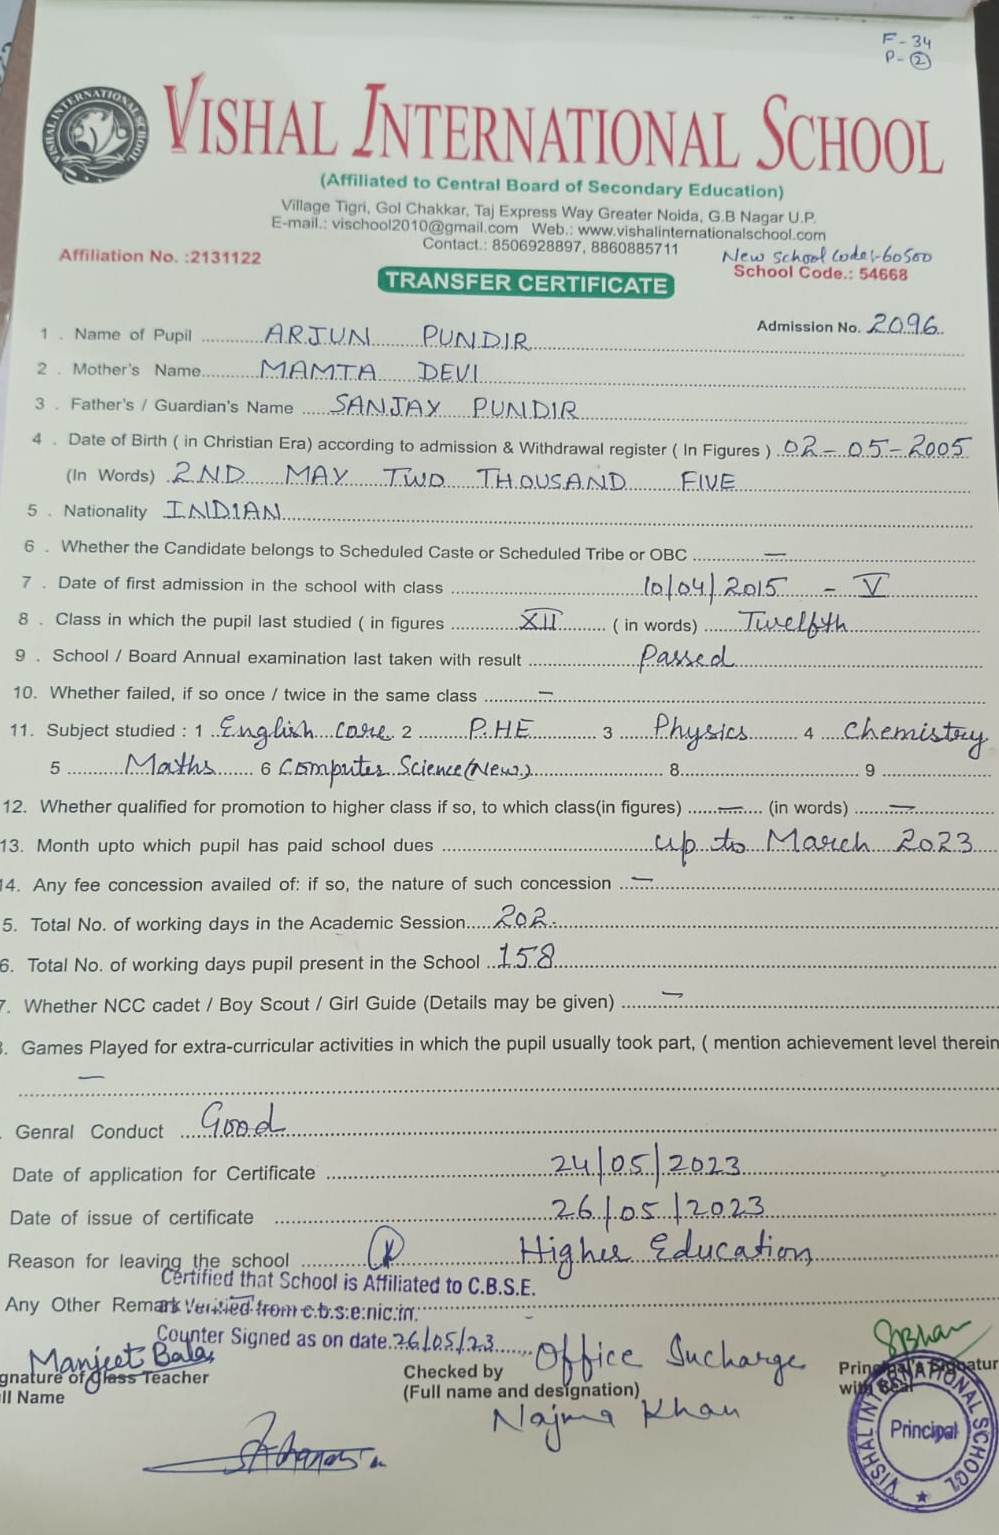 F-34
P-2
VISHAL INTERNATIONAL SCHOOL
VISHAL INTERNATIONAL SCHOOL
(Affiliated to Central Board of Secondary Education)
Village Tigri, Gol Chakkar, Taj Express Way Greater Noida, G.B Nagar U.P.
E-mail.: vischool2010@gmail.com Web.: www.vishalinternationalschool.com
Contact.: 8506928897, 8860885711
New school code:-60500
Affiliation No. :2131122
School Code.: 54668
TRANSFER CERTIFICATE
Admission No. 2096
1 . Name of Pupil ARJUN PUNDIR
2 . Mother's Name MAMTA DEVI
3 . Father's / Guardian's Name SANJAY PUNDIR
4 . Date of Birth ( in Christian Era) according to admission & Withdrawal register ( In Figures ) 02-05-2005
(In Words) 2ND MAY TWO THOUSAND FIVE
5 . Nationality INDIAN
6 . Whether the Candidate belongs to Scheduled Caste or Scheduled Tribe or OBC —
7 . Date of first admission in the school with class 10/04/2015 - V
8 . Class in which the pupil last studied ( in figures XII ( in words) Twelfth
9 . School / Board Annual examination last taken with result Passed
10. Whether failed, if so once / twice in the same class —
11. Subject studied : 1 English Core 2 P.HE 3 Physics 4 Chemistry
5 Maths 6 Computer Science(New) 8 9
12. Whether qualified for promotion to higher class if so, to which class(in figures) — (in words) —
13. Month upto which pupil has paid school dues up to March 2023
14. Any fee concession availed of: if so, the nature of such concession —
5. Total No. of working days in the Academic Session 202
6. Total No. of working days pupil present in the School 158
7. Whether NCC cadet / Boy Scout / Girl Guide (Details may be given) —
. Games Played for extra-curricular activities in which the pupil usually took part, ( mention achievement level therein
—
. Genral Conduct Good
Date of application for Certificate 24/05/2023
Date of issue of certificate 26/05/2023
Reason for leaving the school Higher Education
Certified that School is Affiliated to C.B.S.E.
Any Other Remark Verified from c.b.s.e.nic.in. -
Counter Signed as on date 26/05/23
Manjeet Bala Office Incharge
gnature of Class Teacher Checked by Principal's Signatur
ll Name (Full name and designation) with Seal
Najma Khan
VISHAL INTERNATIONAL SCHOOL
Principal